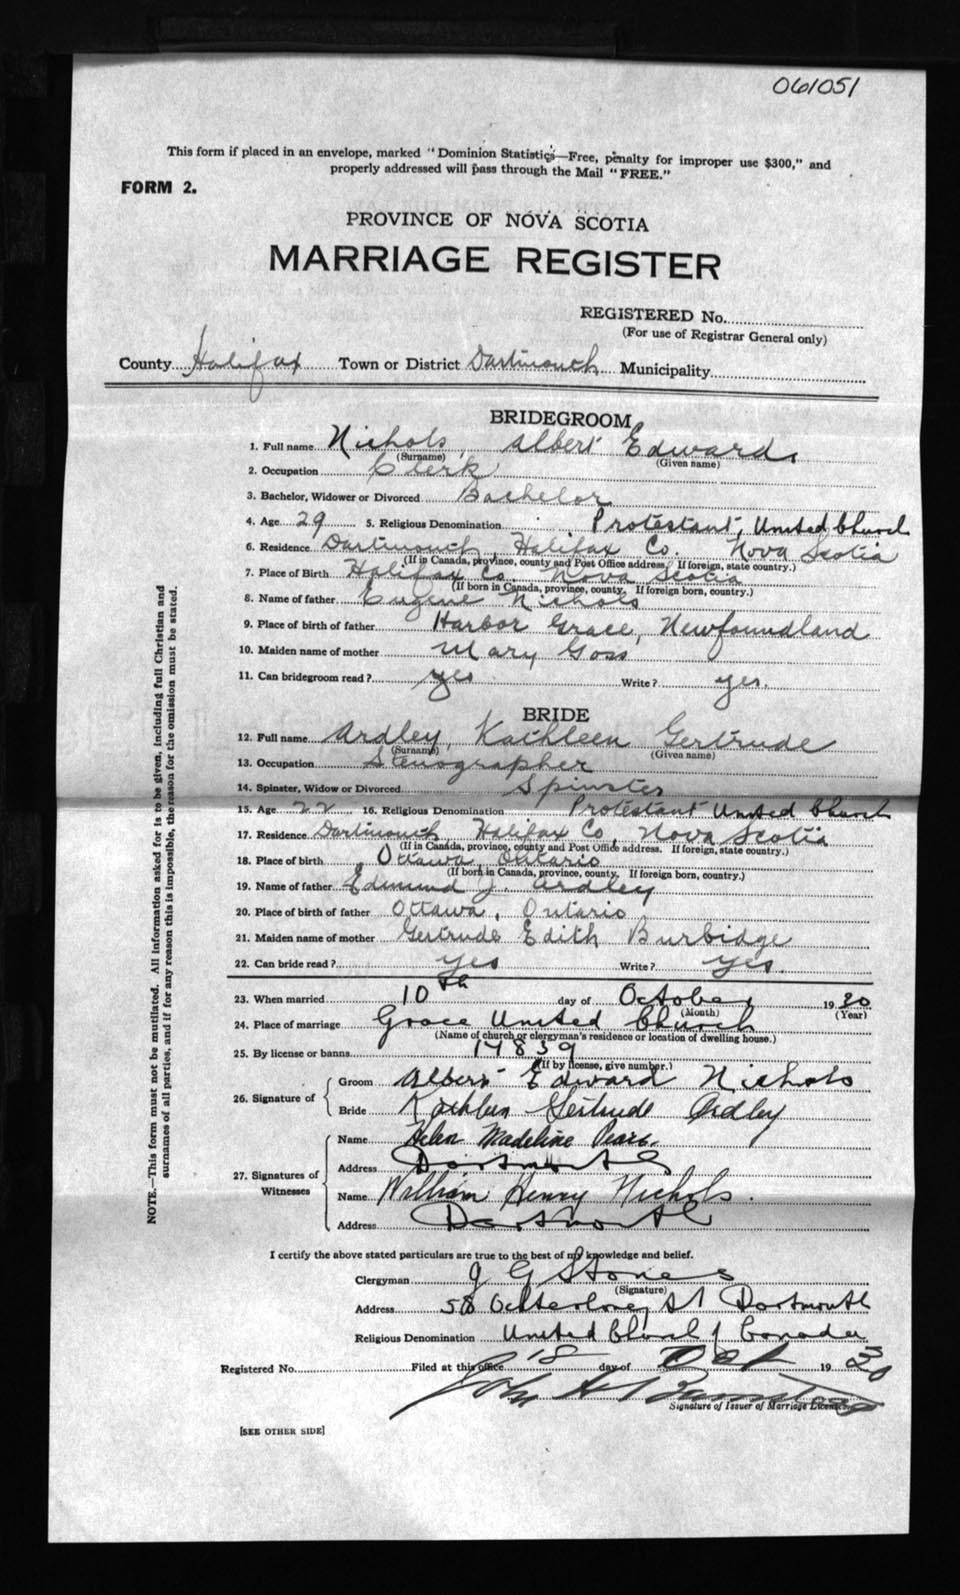 061051
This form if placed in an envelope, marked "Dominion Statistics—Free, penalty for improper use $300," and
properly addressed will pass through the Mail "FREE."
FORM 2.
PROVINCE OF NOVA SCOTIA
MARRIAGE REGISTER
REGISTERED No.
(For use of Registrar General only)
County Halifax Town or District Dartmouth Municipality
BRIDEGROOM
1. Full name Nichols, Albert Edward.
(Surname) (Given name)
2. Occupation Clerk
3. Bachelor, Widower or Divorced Bachelor
4. Age 29 5. Religious Denomination Protestant, United Church
6. Residence Dartmouth, Halifax Co. Nova Scotia
(If in Canada, province, county and Post Office address. If foreign, state country.)
7. Place of Birth Halifax Co. Nova Scotia
(If born in Canada, province, county. If foreign born, country.)
8. Name of father Eugene Nichols
9. Place of birth of father Harbor Grace, Newfoundland
10. Maiden name of mother Mary Goss
11. Can bridegroom read? yes Write? yes.
BRIDE
12. Full name Ardley, Kathleen Gertrude
(Surname) (Given name)
13. Occupation Stenographer
14. Spinster, Widow or Divorced Spinster
15. Age 22 16. Religious Denomination Protestant United Church
17. Residence Dartmouth, Halifax Co, Nova Scotia
(If in Canada, province, county and Post Office address. If foreign, state country.)
18. Place of birth Ottawa, Ontario
(If born in Canada, province, county. If foreign born, country.)
19. Name of father Edmund J. Ardley
20. Place of birth of father Ottawa, Ontario
21. Maiden name of mother Gertrude Edith Burbidge
22. Can bride read? yes Write? yes.
23. When married 10th day of October 1930
(Month) (Year)
24. Place of marriage Grace United Church
(Name of church or clergyman's residence or location of dwelling house.)
25. By license or banns 17839
(If by license, give number.)
26. Signature of Groom Albert Edward Nichols
Bride Kathleen Gertrude Ardley
27. Signatures of Witnesses Name Helen Madeline
Address Dartmouth
Name William Henry Nichols.
Address Dartmouth
I certify the above stated particulars are true to the best of my knowledge and belief.
Clergyman J G Stones
(Signature)
Address 58 Ochterloney St Dartmouth
Religious Denomination United Church of Canada
Registered No. Filed at this office 18 day of Oct 1930
John H
Signature of Issuer of Marriage Licenses
[SEE OTHER SIDE]
NOTE.—This form must not be mutilated. All information asked for is to be given, including full Christian and
surnames of all parties, and if for any reason this is impossible, the reason for the omission must be stated.